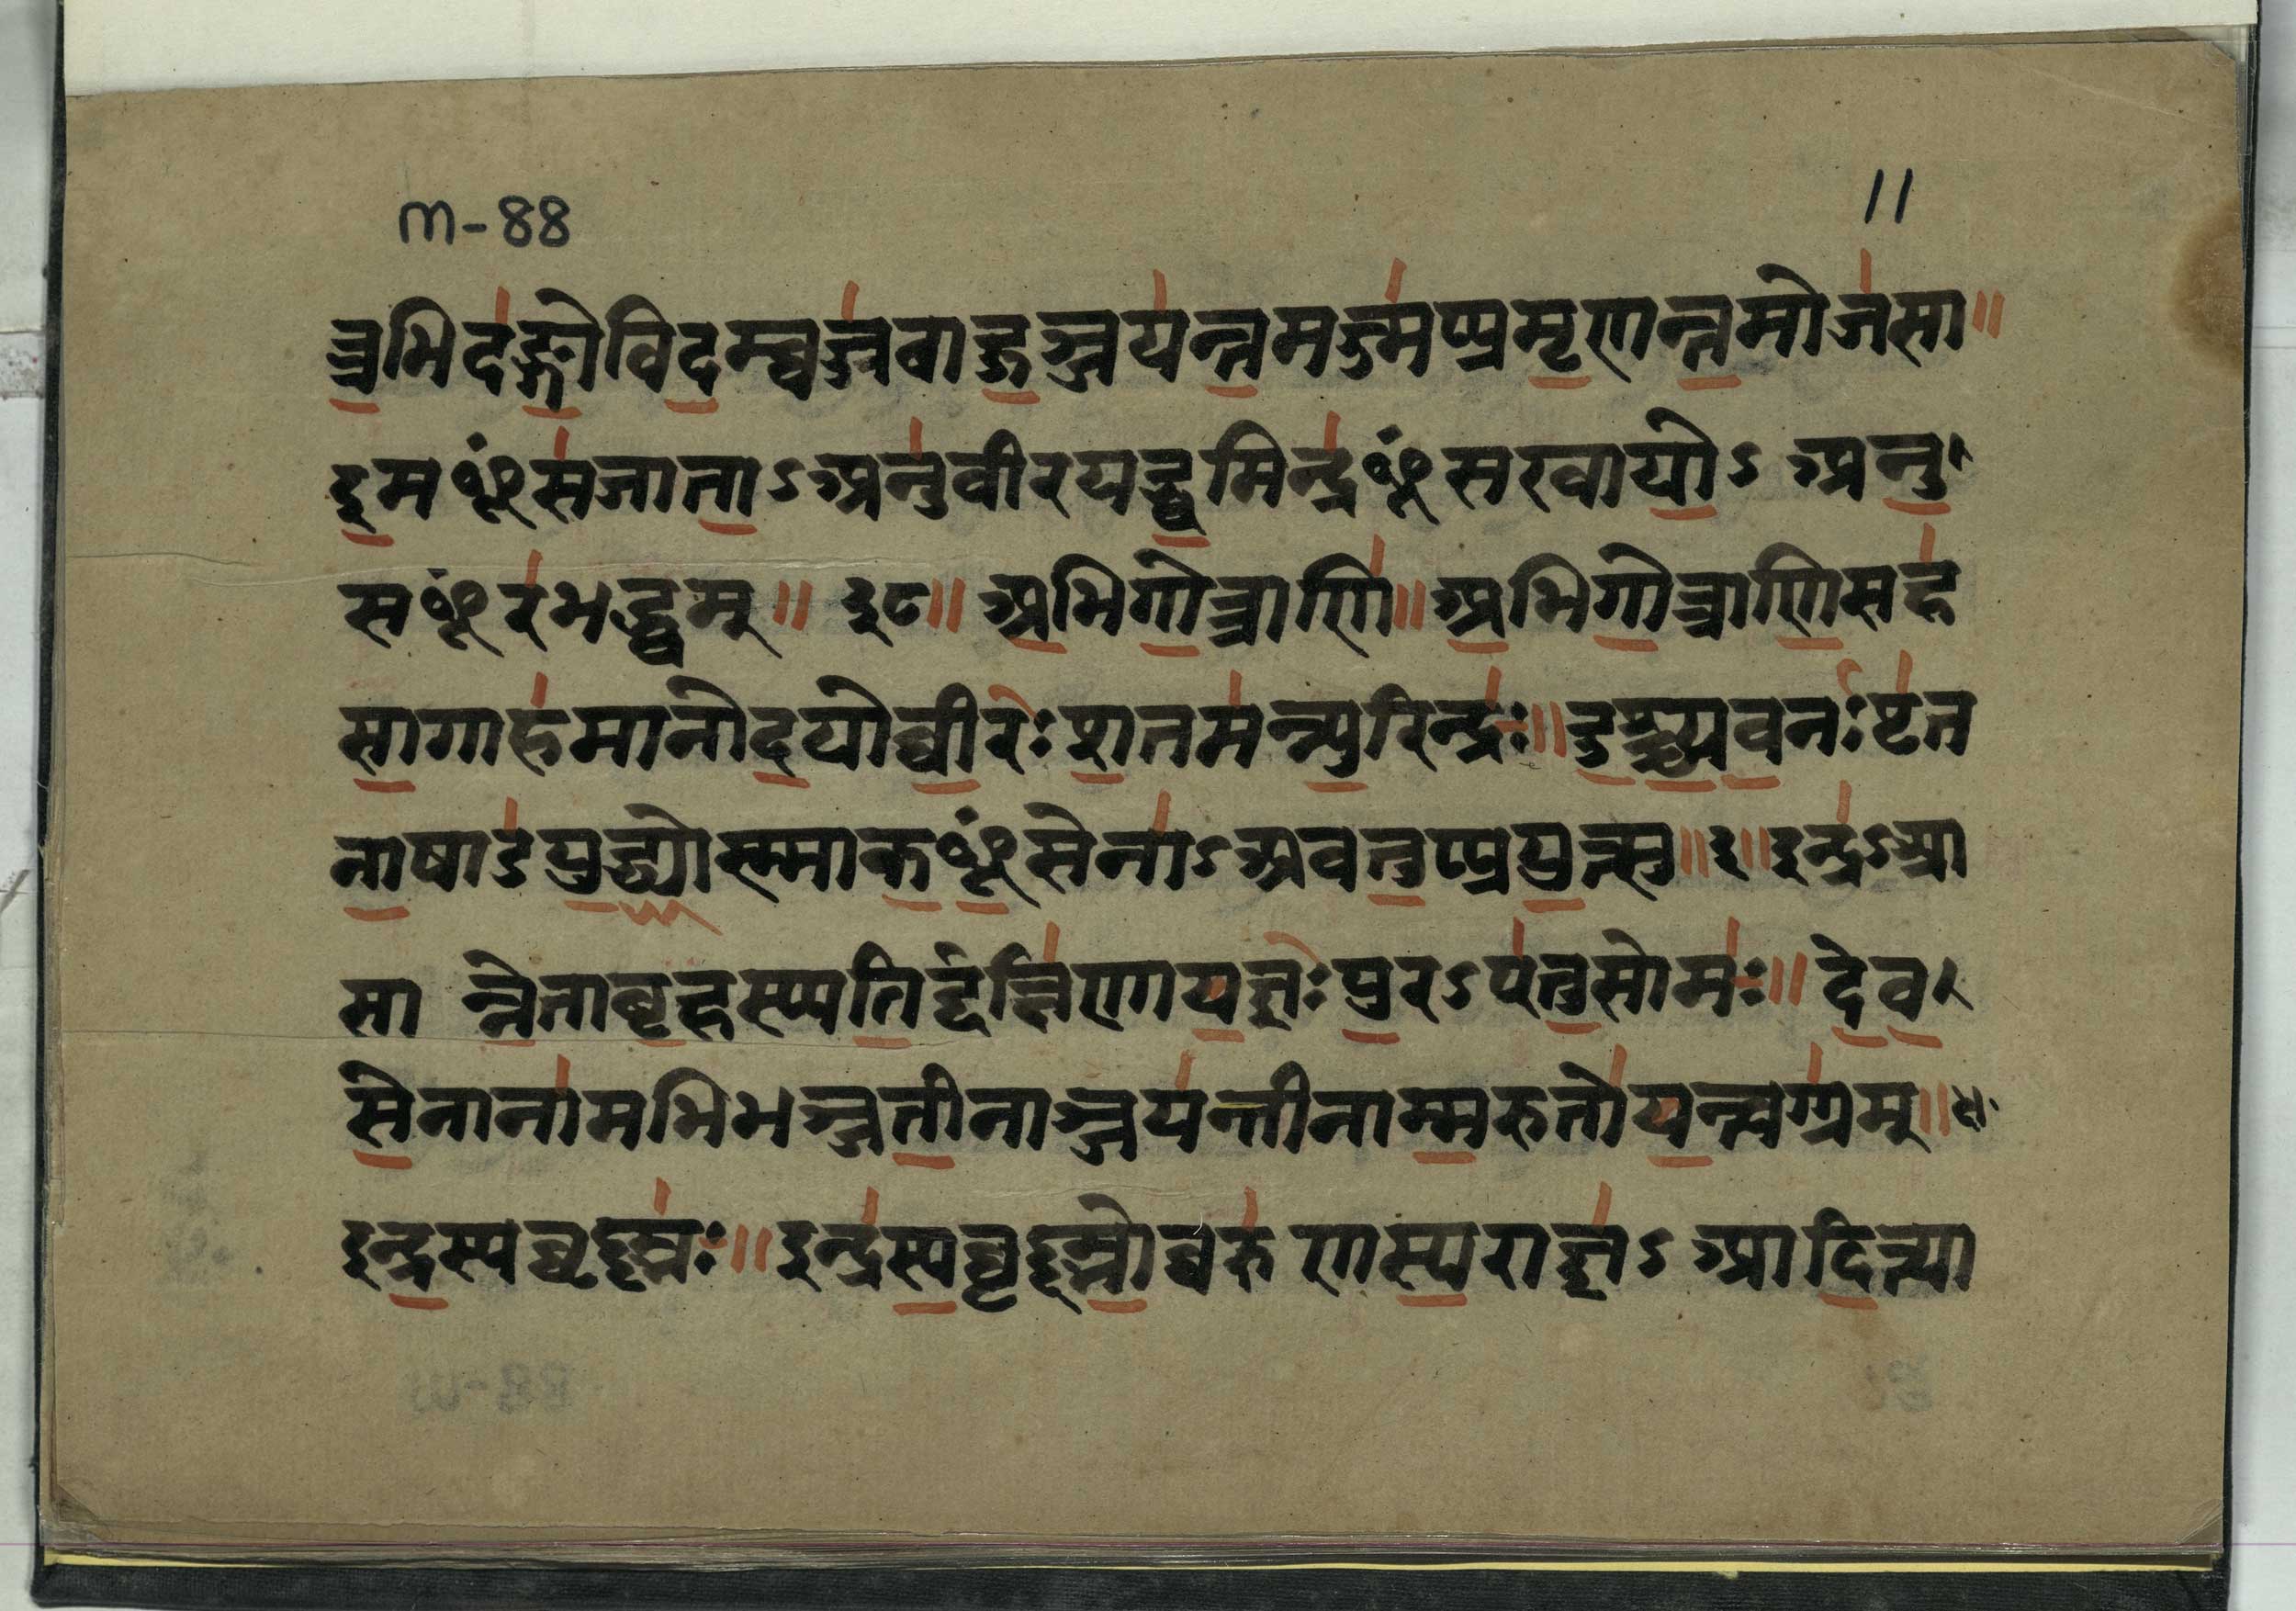 m-88 11
त्रभिदङ्गोविदम्वज्ज्रबाहुञ्जयन्तमज्ज्मप्प्रमृणन्तमोजसा॥
इमᳪसजाताऽअनुवीरयद्ध्वमिन्द्रᳪसखायोऽअनु
सᳪरभद्ध्वम्॥ ३८॥ अभिगोत्राणि॥ अभिगोत्राणिसह
सागाहमानोदयोव्वीरःशतमन्न्युरिन्द्रः॥ दुश्च्यवनःपृत
नाषाडयुद्ध्योस्म्माकᳪसेनाऽअवतुप्प्रयुत्त्सु॥३॥इन्द्रऽआ
सा न्नेताबृहस्प्पतिर्द्दक्षिणायज्ञःपुरऽएतुसोमः॥ देव
सेनानामभिभञ्जतीनाञ्जयन्तीनाम्मरुतोयन्त्वग्ग्रम्॥४॥
इन्द्रस्यव्वृष्ण्णः॥ इन्द्रस्यव्वृष्ण्णोव्वरुणस्यराज्ञऽआदित्या